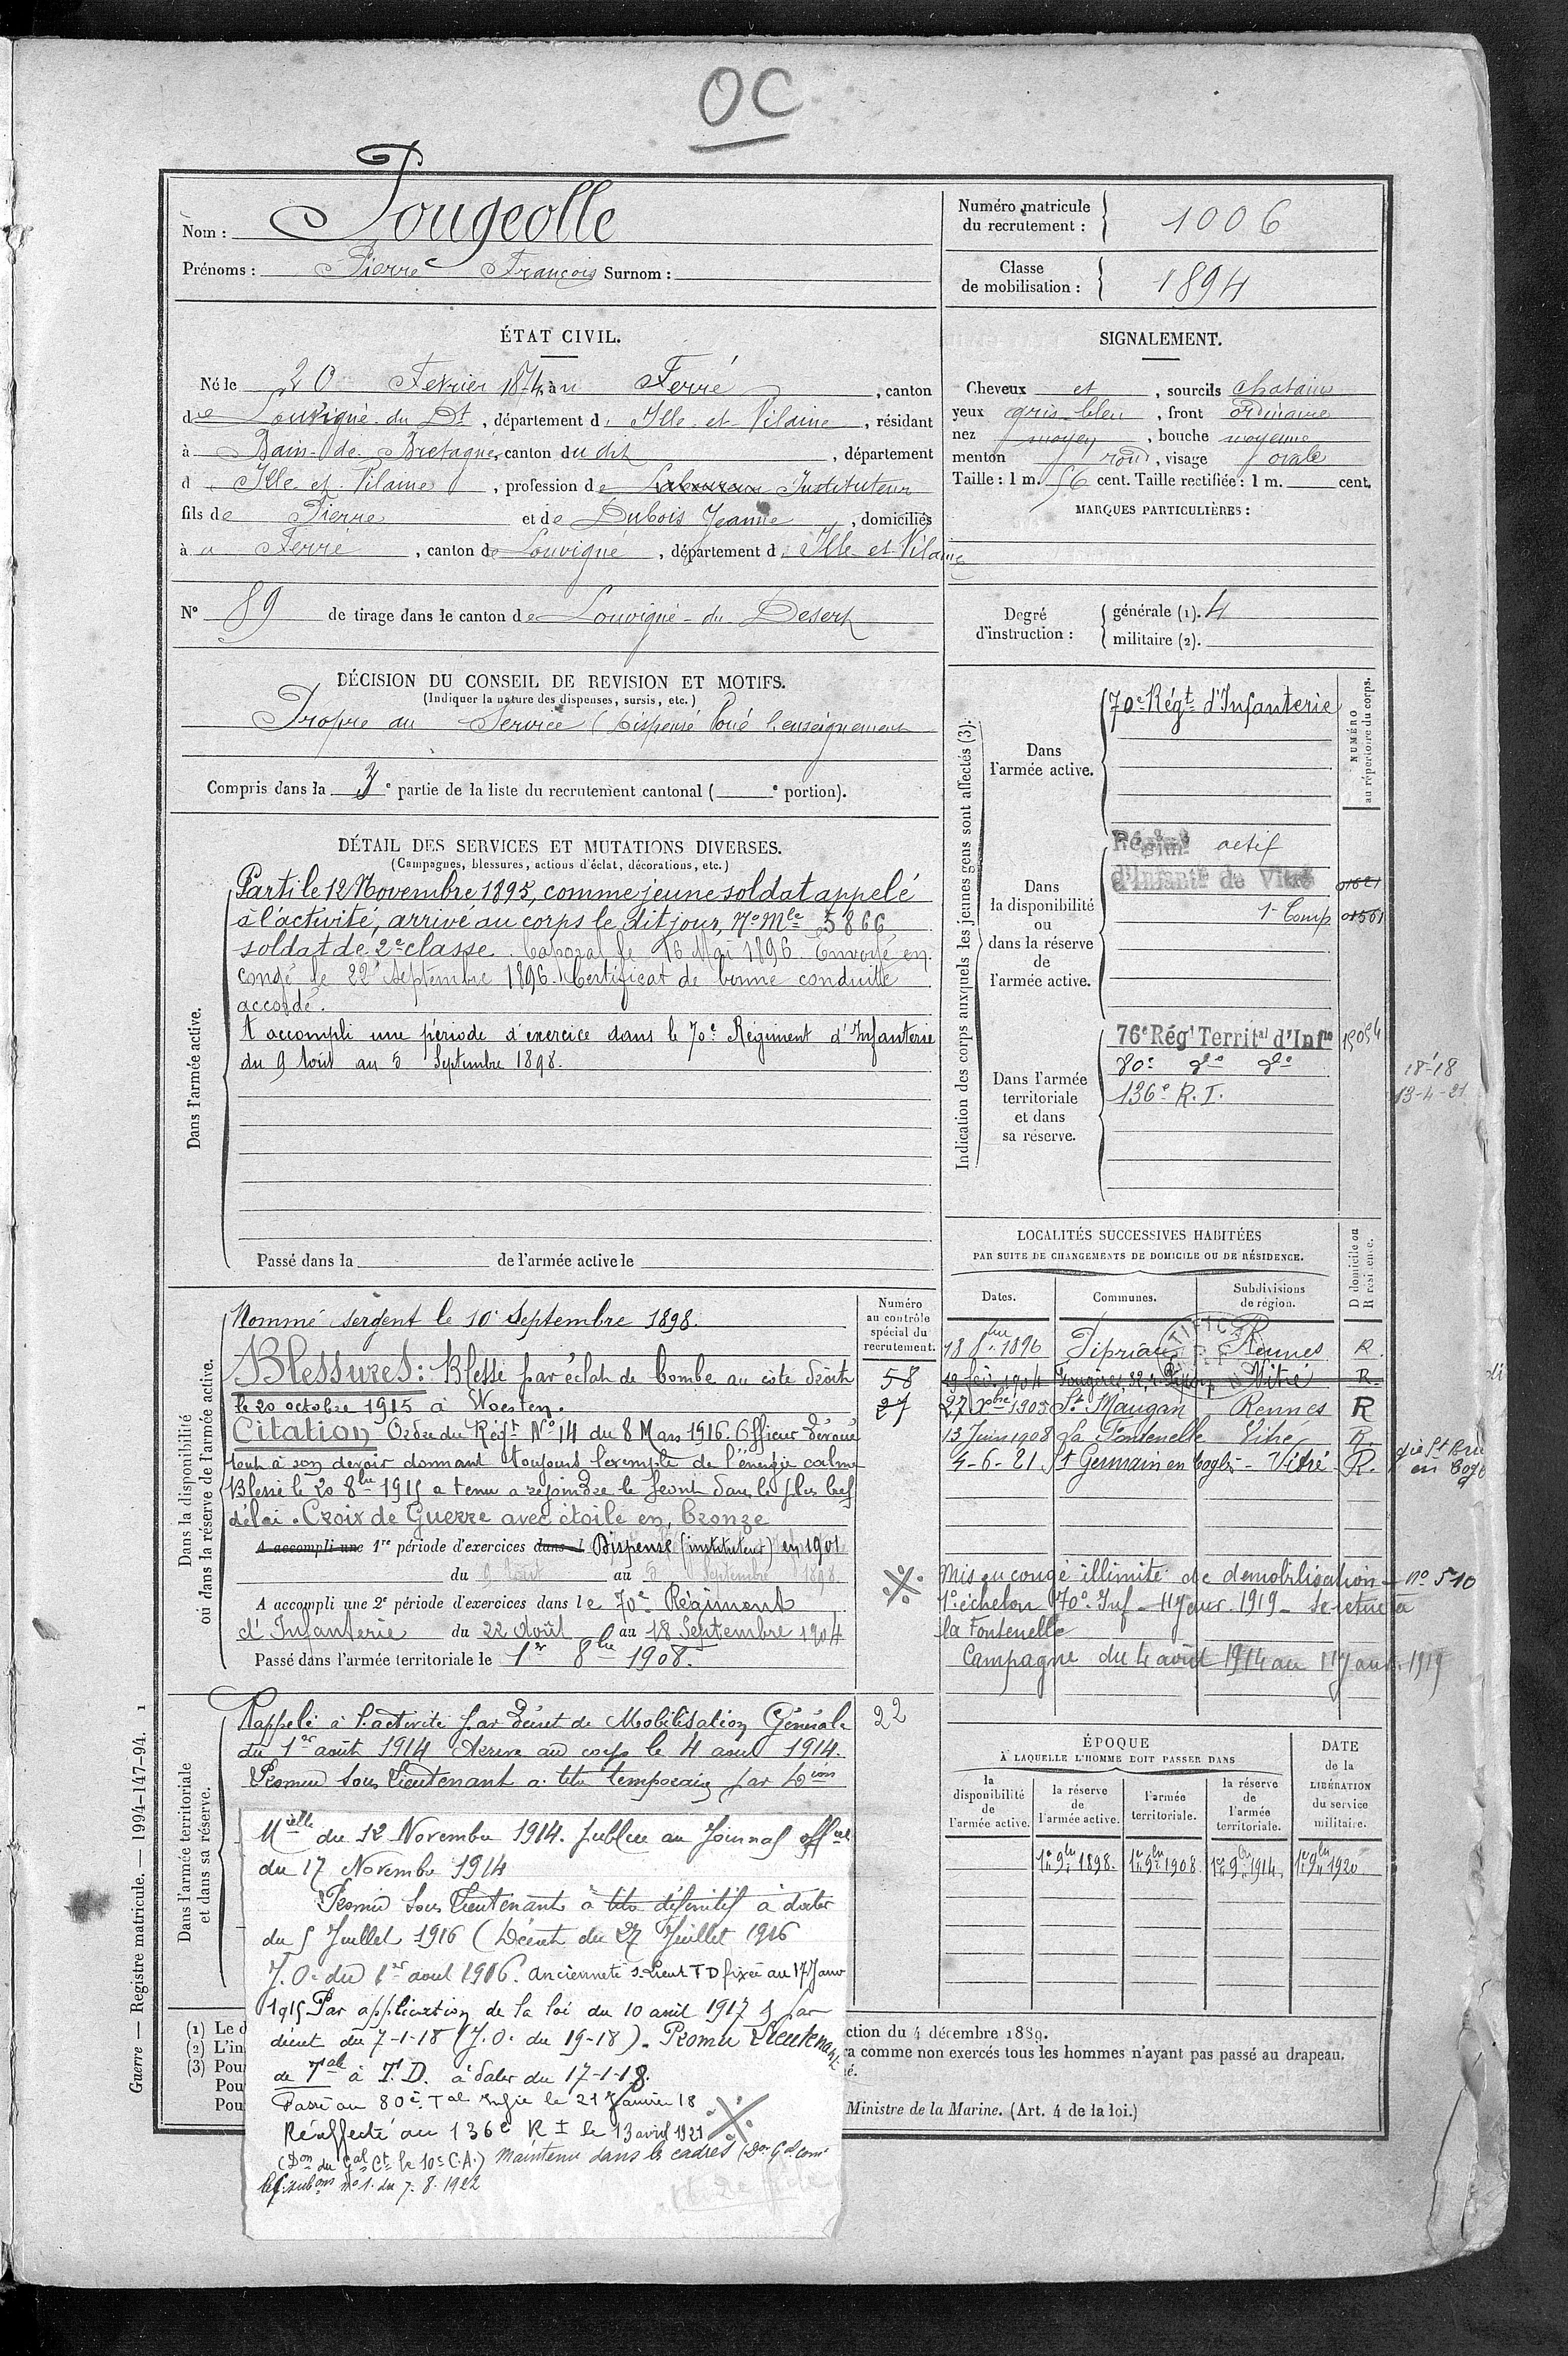 OC
Nom : Fougeolle
Prénoms : Pierre François Surnom :
Numéro matricule du recrutement : 1006
Classe de mobilisation : 1894
ÉTAT CIVIL.
Né le 20 Février 1874, à Ferré, canton
de Louvigné du Dt, département d' Ille et Vilaine, résidant
à Bain-de-Bretagne, canton du dit, département
d' Ille et Vilaine, profession de Laboureur Instituteur
fils de Pierre et de Dubois Jeanne, domiciliés
à Ferré, canton de Louvigné, département d' Ille et Vilaine
N° 89 de tirage dans le canton de Louvigné-du-Desert
SIGNALEMENT.
Cheveux et, sourcils chatains
yeux gris bleu, front ordinaire
nez moyen, bouche moyenne
menton rond, visage ovale
Taille : 1 m. 56 cent. Taille rectifiée : 1 m. cent.
MARQUES PARTICULIÈRES :
Degré d'instruction : générale (1). 4
militaire (2).
DÉCISION DU CONSEIL DE REVISION ET MOTIFS.
(Indiquer la nature des dispenses, sursis, etc.)
Propre au Service (Dispensé Voué l'enseignement
Compris dans la 3e partie de la liste du recrutement cantonal ( e portion).
DÉTAIL DES SERVICES ET MUTATIONS DIVERSES.
(Campagnes, blessures, actions d'éclat, décorations, etc.)
Dans l'armée active.
Parti le 12 Novembre 1895, comme jeune soldat appelé
à l'activité, arrivé au corps le dit jour, N° Mle 5866
soldat de 2e classe. Caporal le 16 Mai 1896. Envoyé en
congé le 22 Septembre 1896. Certificat de bonne conduite
accordé.
A accompli une période d'exercice dans le 70e Régiment d'Infanterie
du 9 Août au 5 Septembre 1898.
Passé dans la de l'armée active le
Indication des corps auxquels les jeunes gens sont affectés (3).
NUMÉRO au répertoire du corps.
Dans l'armée active.
70e Régt d'Infanterie
Dans la disponibilité ou dans la réserve de l'armée active.
actif
d'Infantie de Vitré
1e Comp 01561
Dans l'armée territoriale et dans sa réserve.
76e Régt Territal d'Infie 15094
80e do do
136e R.I.
18-1-18
13-4-21
LOCALITÉS SUCCESSIVES HABITÉES
PAR SUITE DE CHANGEMENTS DE DOMICILE OU DE RÉSIDENCE.
Dates. Communes. Subdivisions de région. D domicile ou R résidence.
18 8bre 1896 Tipriac Rennes R.
19 fév. 1904 Fougères, 32, r Vitré R.
27 Xbre 1905 St Maugan Rennes R
13 Juin 1908 La Fontenelle Vitré R.
4-6-21 St Germain en Coglès - Vitré R.
en Cogl
Mis en congé illimité de demobilisation - n° 510
1er échelon 70e Inf - 11 Janv. 1919 - se retire à
la Fontenelle
Campagne du 4 août 1914 au 11 Janv. 1919
Dans la disponibilité ou dans la réserve de l'armée active.
Numéro au contrôle spécial du recrutement.
58
27
Nommé sergent le 10 Septembre 1898.
Blessures : Blessé par éclat de bombe au côté droit
le 20 octobre 1915 à Woesten.
Citation Ordre du Régt N° 14 du 8 Mars 1916. Officier dévoué
tout à son devoir donnant toujours l'exemple de l'énergie calme
Blessé le 20 8bre 1915 a tenu a rejoindre le front dans le plus bref
délai. Croix de Guerre avec étoile en bronze
A accompli une 1re période d'exercices dans l Dispensé (instituteur) en 1901
du 9 Août au 5 Septembre 1898.
A accompli une 2e période d'exercices dans le 70e Régiment
d'Infanterie du 22 Août au 18 Septembre 1904
Passé dans l'armée territoriale le 1er 8bre 1908.
Dans l'armée territoriale et dans sa réserve.
22
Rappelé à l'activité par décret de Mobilisation Générale
du 1er août 1914 Arrivé au corps le 4 aout 1914.
Promu Sous Lieutenant a titre temporaire par Don
Mielle du 12 Novembre 1914. publiée au Journal offciel
du 17 Novembre 1914
Promu Sous Lieutenant à titre définitif à dater
du 5 Juillet 1916 (Décret du 27 Juillet 1916
J.O. du 1er aout 1916. ancienneté s. Lieut T D fixée au 17 Janv
1915 Par application de la loi du 10 avril 1917 & par
décret du 7-1-18 (J.O. du 19-18). Promu Lieutenant
de Tal à T.D. à dater du 17-1-18.
Passé au 80e Tal Infie le 21 Janvier 18
Réaffecté au 136e R I le 13 avril 1921
(Don du Gal Ct le 10e C.A.) Maintenu dans les cadres (Don Gal Comt
n° 1. du 7. 8. 1922
ÉPOQUE
À LAQUELLE L'HOMME DOIT PASSER DANS
la disponibilité de l'armée active. la réserve de l'armée active. l'armée territoriale. la réserve de l'armée territoriale. DATE de la LIBÉRATION du service militaire.
1er 9bre 1898. 1er 9bre 1908. 1er 9bre 1914. 1er 9bre 1920
(1) Le d
(2) L'in
(3) Pou
Pou
Pou
ction du 4 décembre 1889.
ra comme non exercés tous les hommes n'ayant pas passé au drapeau.
né.
Ministre de la Marine. (Art. 4 de la loi.)
Guerre — Registre matricule. — 1994-147-94. 1